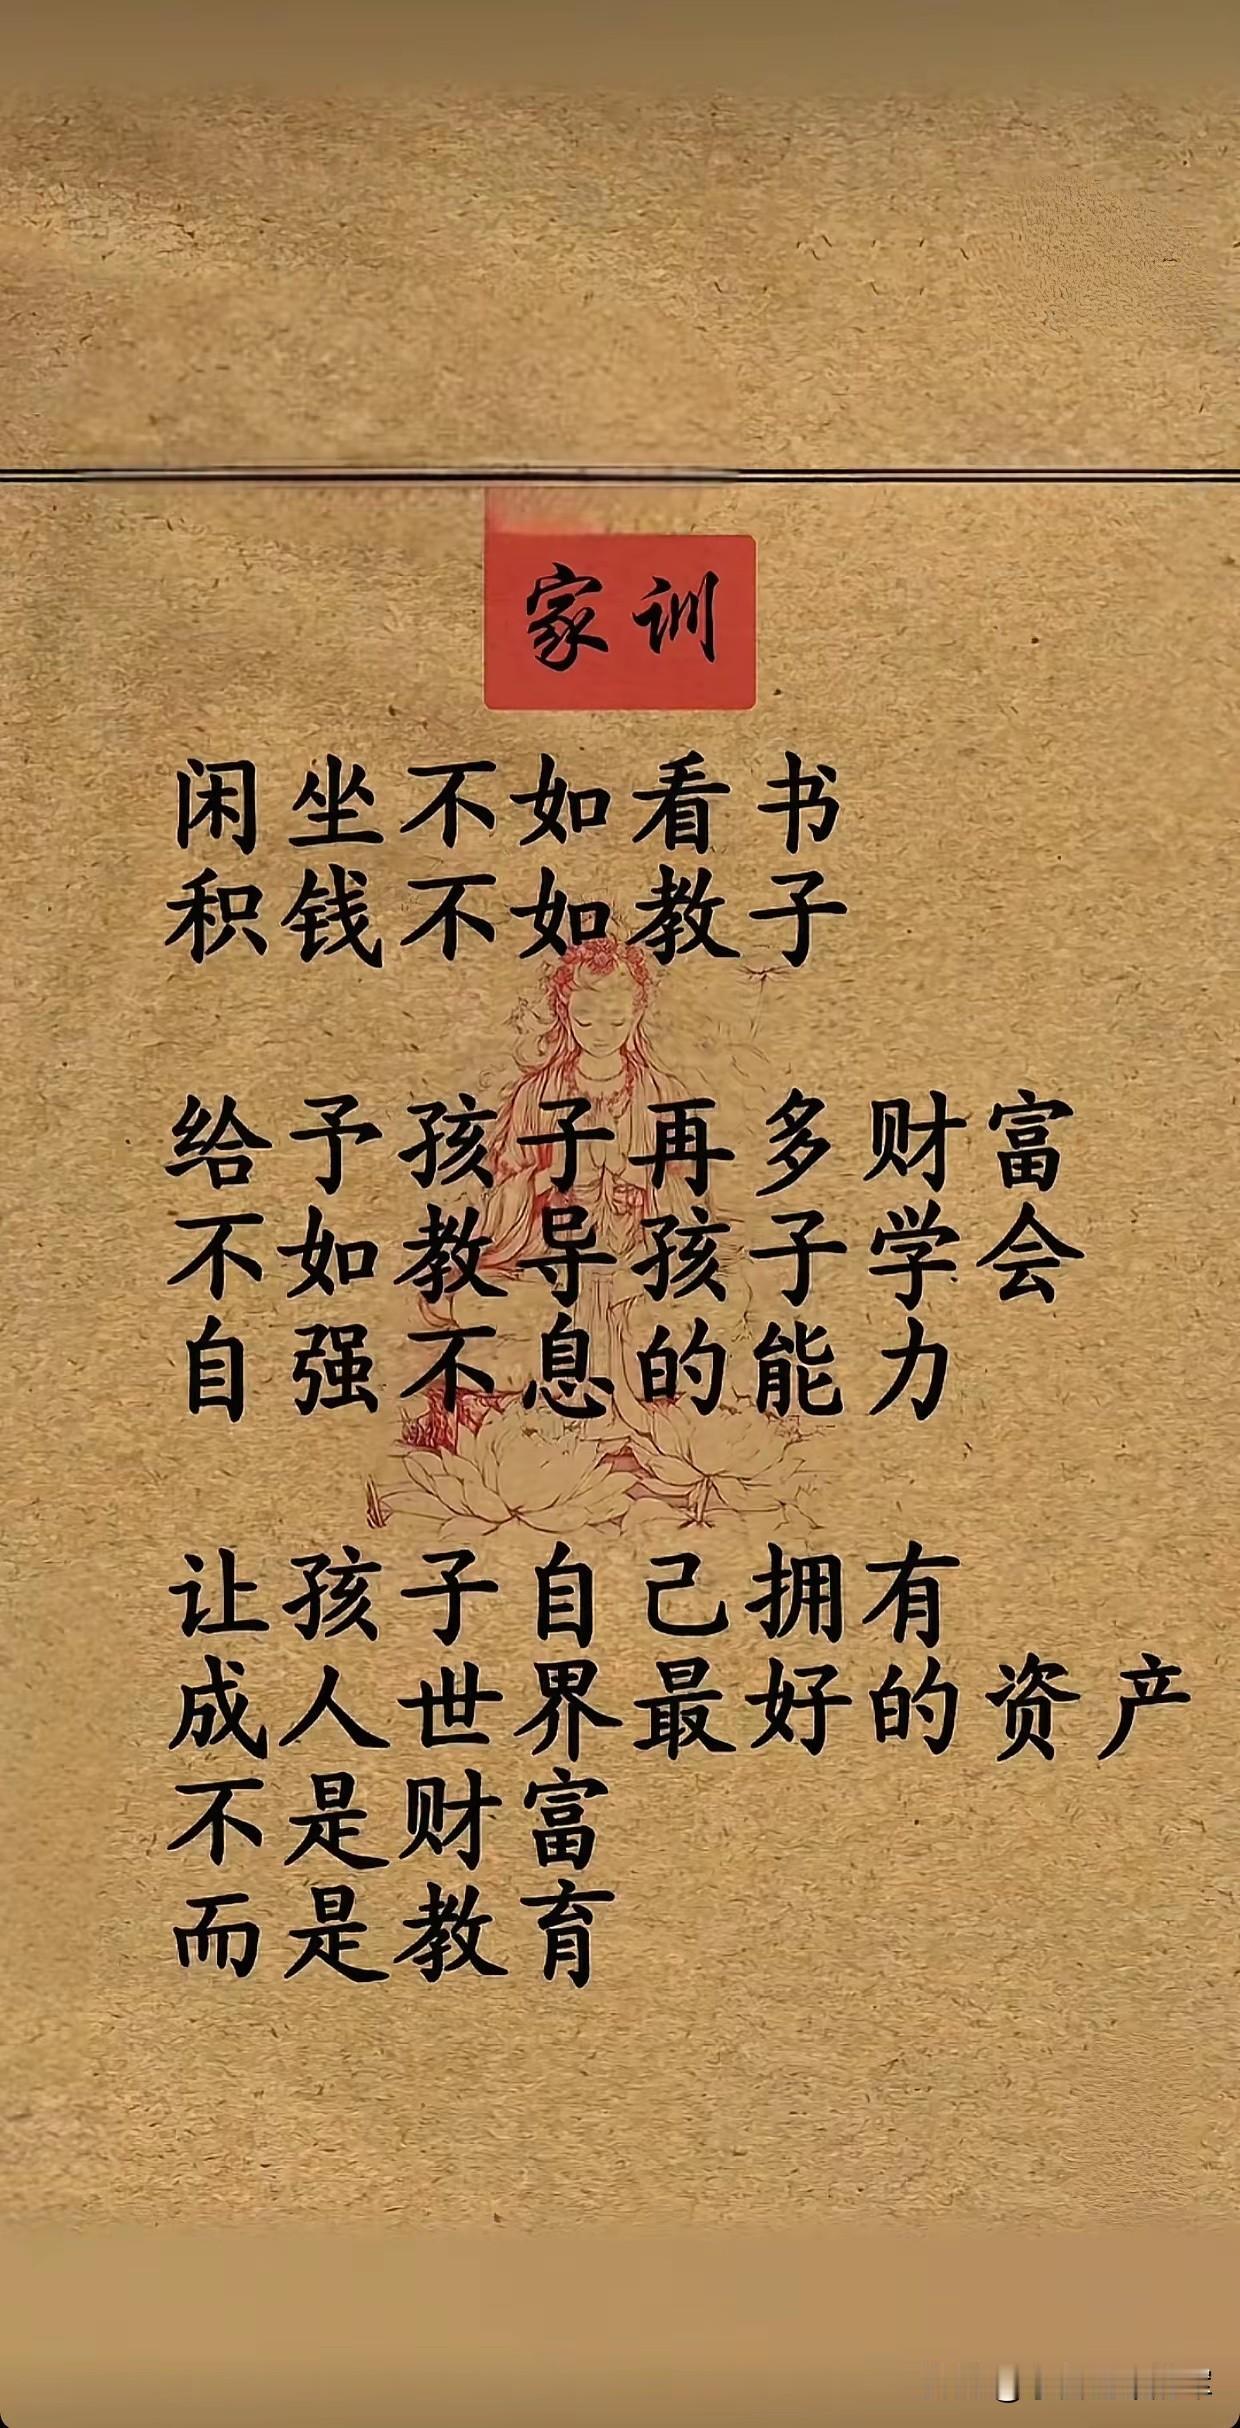 家训
闲坐不如看书
积钱不如教子
给予孩子再多财富
不如教导孩子学会
自强不息的能力
让孩子自己拥有
成人世界最好的资产
不是财富
而是教育